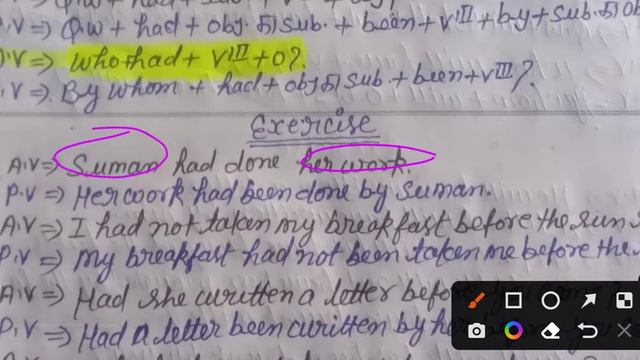 P.V ⇒ Q.w + had + obj. का sub. + been + VIII + by + sub. का ob
A.V ⇒ who + had + VIII + O?
P.V ⇒ By whom + had + obj का sub. + been + VIII?
Exercise
A.V ⇒ Suman had done her work.
P.V ⇒ Her work had been done by Suman.
A.V ⇒ I had not taken my breakfast before the sun
P.V ⇒ My breakfast had not been taken me before the
A.V ⇒ Had she written a letter before
P.V ⇒ Had a letter been written by her